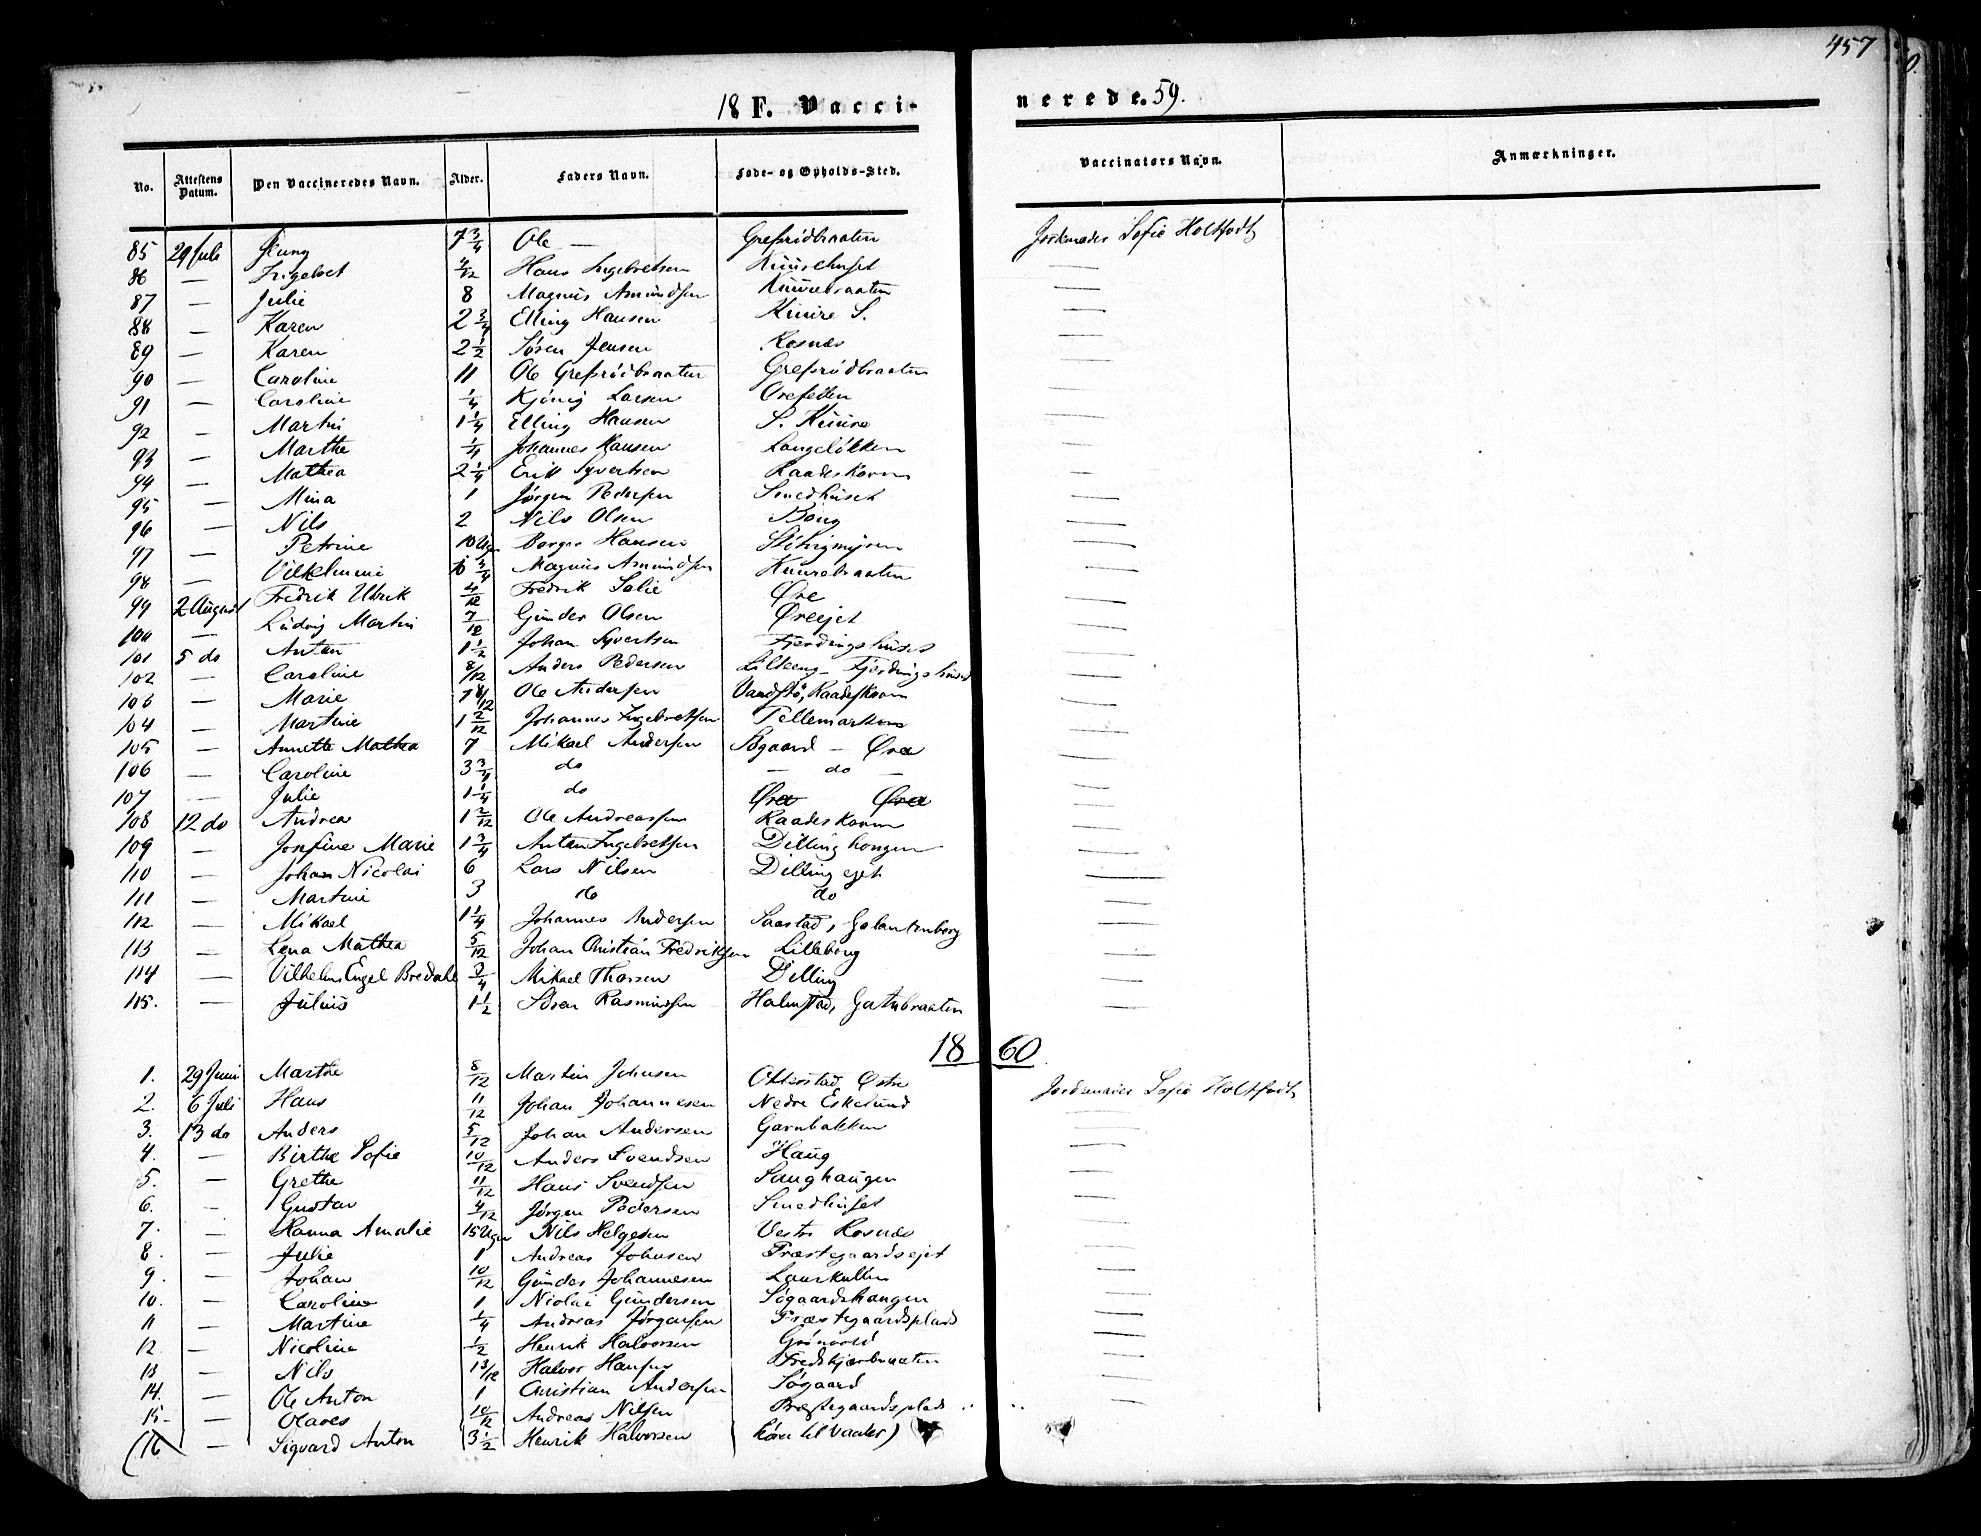 457
18 F. Vacci-nerede. 59.
No. Attestens Datum. Den Vaccineredes Navn. Alder. Faders Navn. Føde- og Opholds-Sted. Vaccinatørs Navn. Anmærkninger.
85 29 Juli 7 3/4 Ole — Grefsrødbraaten Jordemoder Sofie Holtfodt
86 — Ingebret 4/12 Hans Ingebretsen Kuurehuset —
87 — Julie 8 Magnus Amundsen Kuurebraaten —
88 — Karen 2 3/4 Elling Hansen Kuure S. —
89 — Karen 2 1/2 Søren Jensen Rosnæs —
90 — Caroline 11 Ole Grefsrødbraaten Grefsrødbraaten —
91 — Caroline 1/4 Kjønig Larsen Orefellen —
92 — Martin 1 1/4 Elling Hansen S. Kuure —
93 — Marthe 1/4 Johannes Hansen Langeløkken —
94 — Mathea 2 1/4 Erik Syvertsen Raadeskoven —
95 — Mina 1 Jørgen Pedersen Smedhuset —
96 — Nils 2 Nils Olsen Boug —
97 — Petrine 10 Uger Borger Hansen —
98 — Vilhelmine 3/4 Magnus Amundsen Kuurebraaten —
99 2 August Fredrik Ulrik 4/12 Fredrik Salie Øre —
100 — Ludvig Martin 7/12 Gunder Olsen Øreejet —
101 5 do Anton 1 1/2 Johan Syvertsen Fjerdingshuset —
102 — Caroline 8/12 Anders Pedersen Lilleeng — Fjerdingshuset —
103 — Marie Ole Andersen Vandstø, Raadeskoven —
104 — Martine 1 2/12 Johannes Ingebretsen Tellemarken —
105 — Annette Mathea 7 Mikael Andersen Søgaard — Øre —
106 — Caroline 3 3/4 do — do — —
107 — Julie 1 1/4 do Øre Øre —
108 12 do Andrea 1 2/12 Ole Andreassen Raadeskoven —
109 — Josefine Marie 1 3/4 Anton Ingebretsen Dillinghougen —
110 — Johan Nicolai 6 Lars Nilsen Dilling ejet —
111 — Martine 3 do do —
112 — Mikael 1 1/4 Johannes Andersen Saastad, Galantenborg —
113 — Lena Mathea 5/12 Johan Christian Fredriksen Lilleborg —
114 — Vilhelm Engel Bredahl 3/4 Mikael Thorsen Dilling —
115. — Julius 1 1/2 Søren Rasmussen Halmstad, —
18 60.
1. 29 Juni Marthe 8/12 Martin Johnsen Otterstad, Østre Jordemoder Sofie Holtfodt
2. 6 Juli Hans 11/12 Johan Johannesen Nedre Eskelund —
3. 13 do Anders 5/12 Johan Andersen Garnbakken —
4. — Birthe Sofie 10/12 Anders Svendsen Haug —
5. — Grethe 11/12 Hans Svendsen Saughaugen —
6. — Gustav 4/12 Jørgen Pedersen Smedhuset —
7. — Hanna Amalie 15 Uger Nils Helgesen Vestre Rosnæs —
8. — Julie 1 Andreas Johnsen Præstegaardsejet —
9. — Johan 10/12 Gunder Johannesen Laurkullen —
10. — Caroline 1 Nicolai Gundersen Søgaardshaugen —
11 — Martine 1/4 Andreas Jørgensen Præstegaardsplads —
12 — Nicoline 1/2 Henrik Halvorsen Grønvold —
13 — Nils 13/12 Halvor Hansen Fredskjærbraaten —
14. — Ole Anton 1 Christian Andersen Søgaard —
15 — Olaves 10/12 Andreas Nilsen Præstegaardsplads —
(16 — Sigvard Anton 3 1/2 Henrik Halvorsen hører til Vaaler)